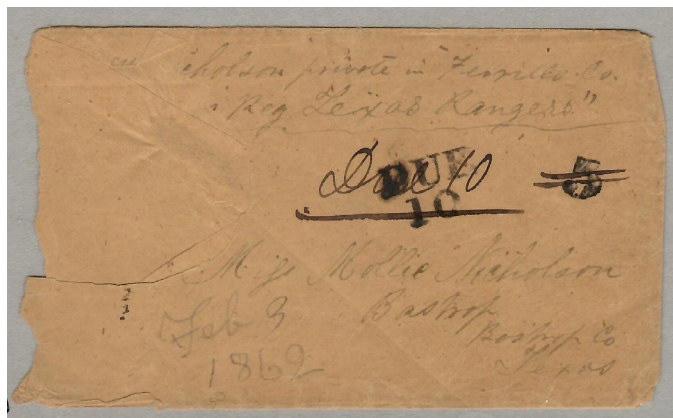 Nicholson private in "Ferrills Co.
Reg Texas Rangers"
Due 10
DUE
10
5
Miss Mollie Nicholson
Bastrop
Bastrop Co
Texas
Feb 3
1862